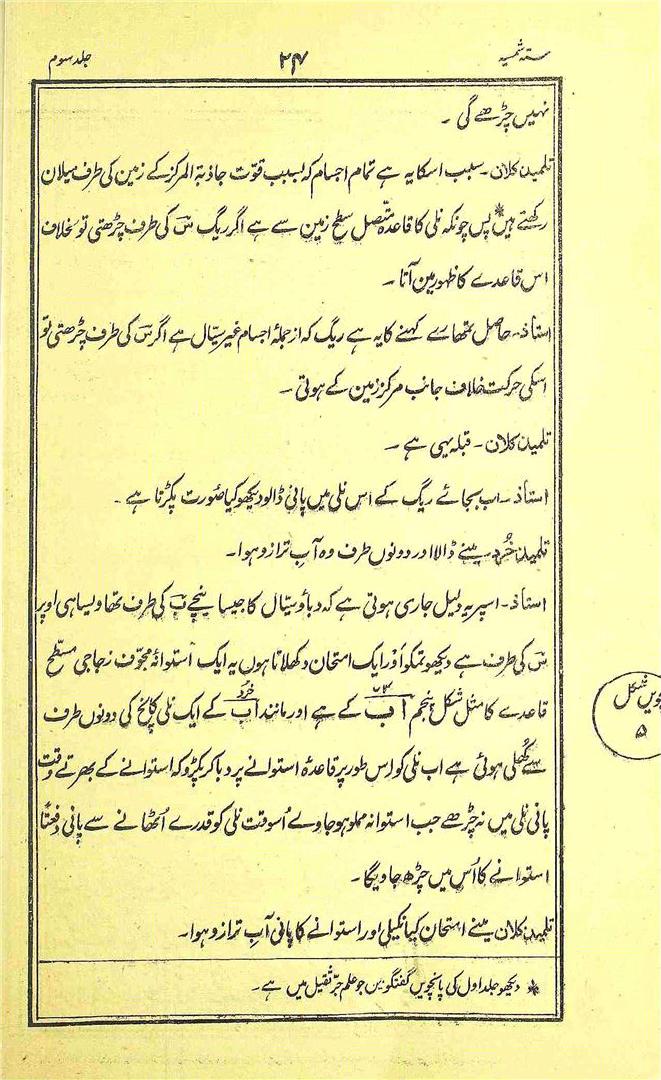 ستہ شمسیہ ۲۴ جلد سوم
نہیں چڑھے گی ۔
تلمیذ کلان ۔ سبب اسکا یہ ہے تمام اجسام کہ بسبب قوّت جاذبۃ المرکز کے زمین کی طرف میلان
رکھتے ہیں* پس چونکہ نلی کا قاعدہ متّصل سطح زمین سے ہے اگر ریگ سَ کی طرف چڑھتی تو بخلاف
اس قاعدے کا ظہور مین آتا ۔
استاذ ۔ حاصل تمھارے کہنے کا یہ ہے ریگ کہ از جملۂ اجسام غیر سیّال ہے اگر سَ کی طرف چڑھتی تو
اسکی حرکت خلاف جانب مرکز زمین کے ہوتی ۔
تلمیذ کلان ۔ قبلہ یہی ہے ۔
استاذ ۔ اب بجائے ریگ کے اس نلی میں پانی ڈالو دیکھو کیا صورت پکڑتا ہے ۔
تلمیذ خُرد ۔ مینے ڈالا اور دونوں طرف وہ آب ترازو ہوا ۔
استاذ ۔ اسپر یہ دلیل جاری ہوتی ہے کہ دباؤ سیّال کا جیسا نیچے بَ کی طرف تھا ویسا ہی اوپر
سَ کی طرف ہے دیکھو تمکو اَور ایک امتحان دکھلاتا ہوں یہ ایک استوانۂ مجوّف زجاجی مسطّح
قاعدے کا مثل شکل پنجم آ ب کے ہے اور مانند آب کے ایک نلی کانچ کی دونوں طرف
سے کُھلی ہوئی ہے اب نلی کو اس طور پر قاعدۂ استوانے پر دبا کر پکڑو کہ استوانے کے بھرتے وقت
پانی نلی میں نہ چڑھے جب استوانہ مملو ہو جاوے اُسوقت نلی کو قدرے اُٹھانے سے پانی دفعتًا
استوانے کا اُس میں چڑھ جاویگا ۔
تلمیذ کلان مینے امتحان کیا نکیلی اور استوانے کا پانی آب ترازو ہوا ۔
* دیکھو جلد اول کی پانچویں گفتگو میں جو علم جرّ ثقیل میں ہے ۔
ویں شکل
۵